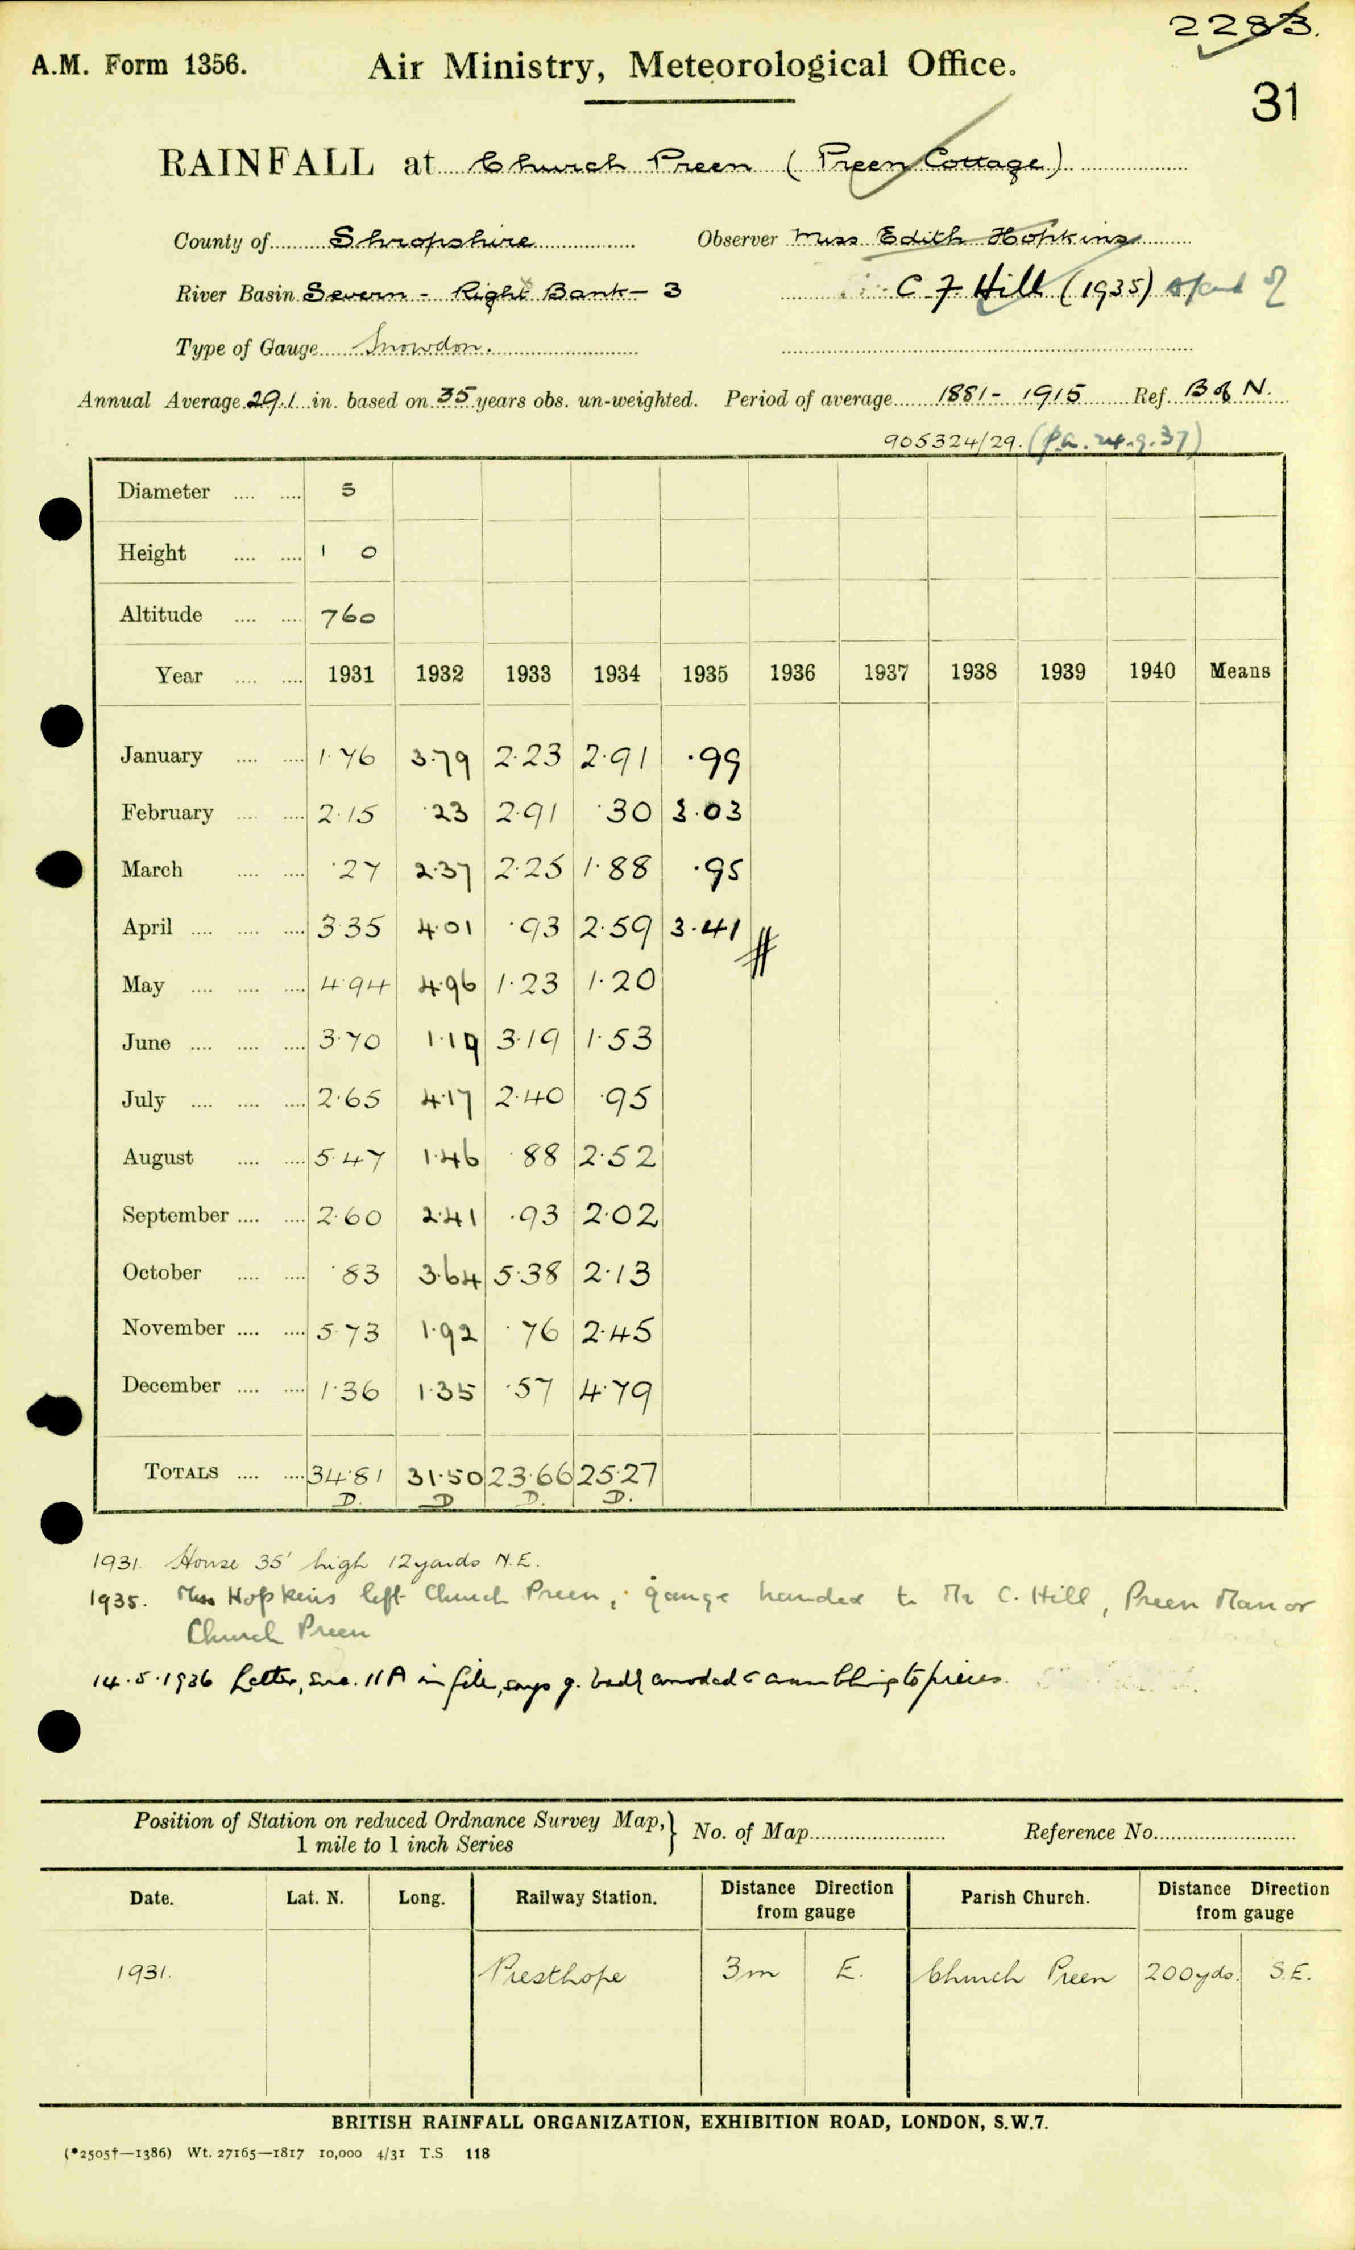 2283.
A.M. Form 1356. Air Ministry, Meteorological Office.
31
RAINFALL at Church Preen (Preen Cottage)
County of Shropshire Observer Miss Edith Hopkins
River Basin Severn - Right Bank - 3 C F Hill (1935)
Type of Gauge Snowdon.
Annual Average 29.1 in. based on 35 years obs. un-weighted. Period of average 1881 - 1915 Ref. B of N.
905324/29. (pa. 24.9.37)
Diameter .... .... 5
Height .... .... 1 0
Altitude .... .... 760
Year .... .... 1931 1932 1933 1934 1935 1936 1937 1938 1939 1940 Means
January .... .... 1.76 3.79 2.23 2.91 .99
February .... .... 2.15 .23 2.91 .30 3.03
March .... .... .27 2.37 2.25 1.88 .95
April .... .... .... 3.35 4.01 .93 2.59 3.41
May .... .... .... 4.94 4.96 1.23 1.20
June .... .... .... 3.70 1.19 3.19 1.53
July .... .... .... 2.65 4.17 2.40 .95
August .... .... 5.47 1.46 .88 2.52
September .... .... 2.60 2.41 .93 2.02
October .... .... .83 3.64 5.38 2.13
November .... .... 5.73 1.92 .76 2.45
December .... .... 1.36 1.35 .57 4.79
TOTALS .... .... 34.81 31.50 23.66 25.27
D. D D. D.
1931. House 35' high 12 yards N.E.
1935. Miss Hopkins left Church Preen, gauge handed to Mr C. Hill, Preen Manor
Church Preen
14.5.1936 Letter, enc. 11A in file, says g. badly corroded & crumbling to pieces.
Position of Station on reduced Ordnance Survey Map, } No. of Map Reference No.
1 mile to 1 inch Series
Date. Lat. N. Long. Railway Station. Distance Direction from gauge Parish Church. Distance Direction from gauge
1931. Presthope 3m E. Church Preen 200 yds. S.E.
BRITISH RAINFALL ORGANIZATION, EXHIBITION ROAD, LONDON, S.W.7.
(*2505†—1386) Wt. 27165—1817 10,000 4/31 T.S 118